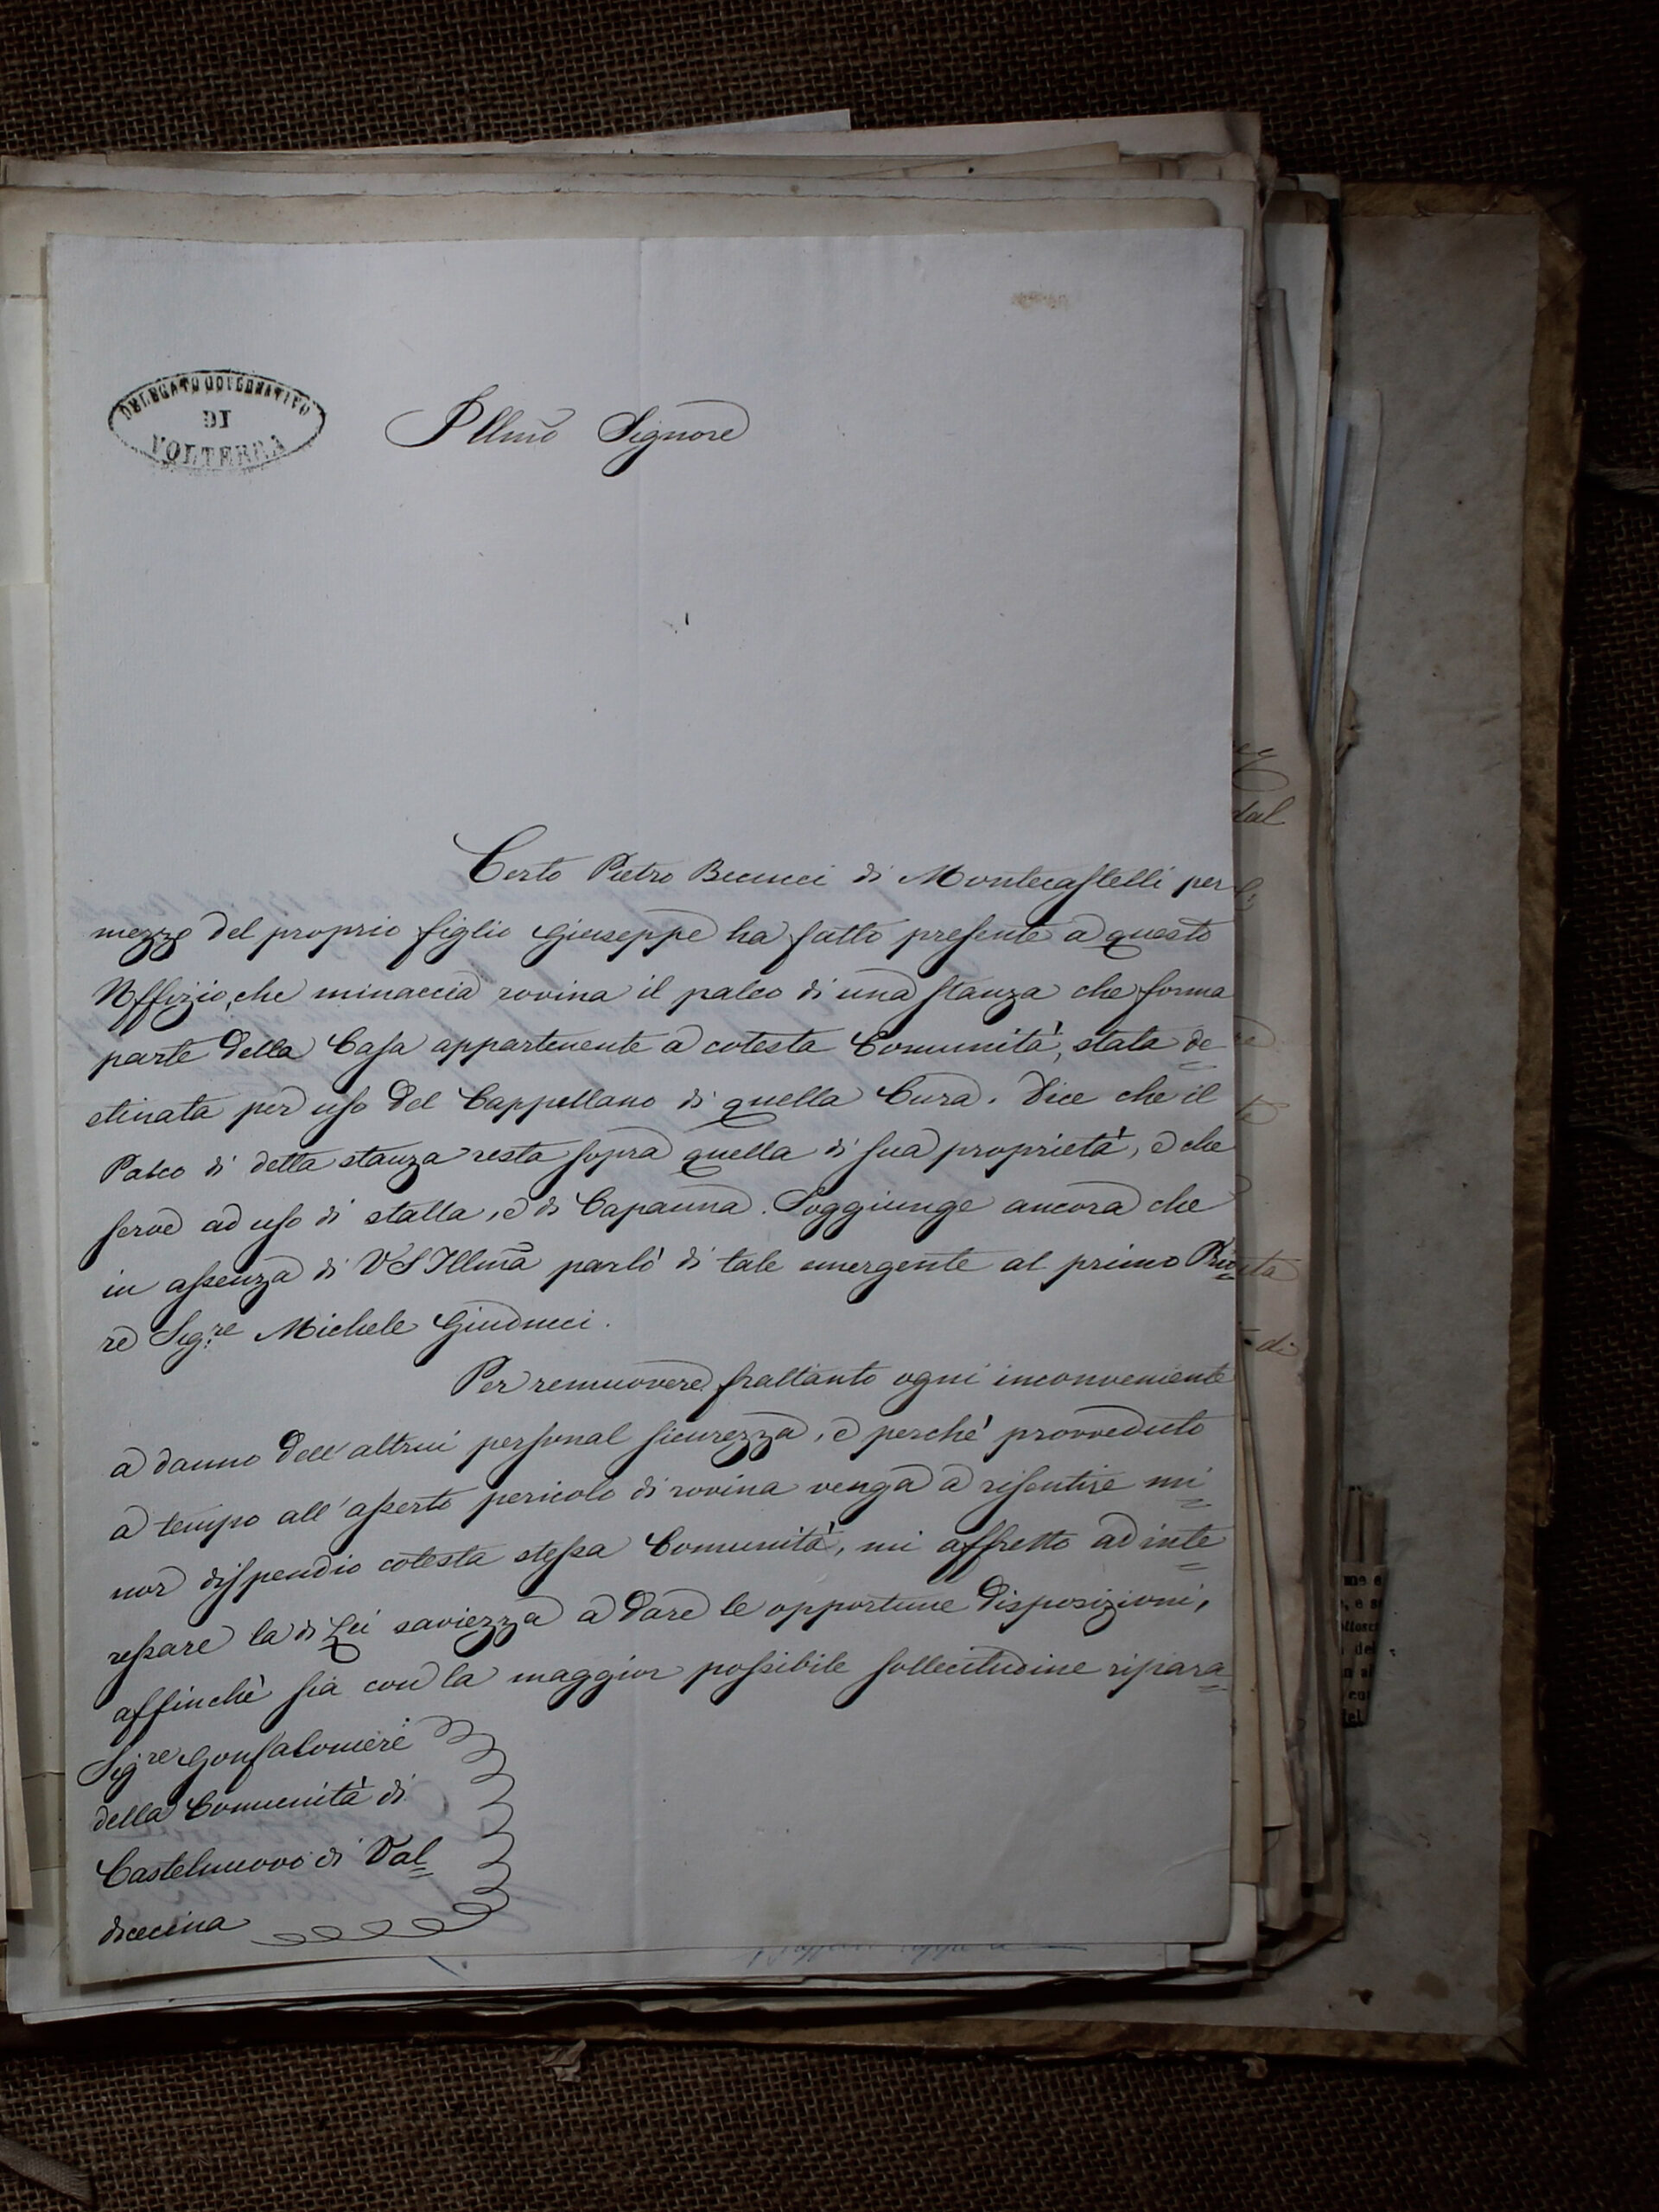 DELEGATO GOVERNATIVO
DI
VOLTERRA
Illmo Signore
Certo Pietro Becucci di Montecastelli per
mezzo del proprio figlio Giuseppe ha fatto presente a questo
Uffizio, che minaccia rovina il palco di una stanza che forma
parte della Casa appartenente a cotesta Comunità, stata de=
stinata per uso del Cappellano di quella Cura. Dice che il
Palco di detta stanza resta sopra quella di sua proprietà, e che
serve ad uso di stalla, e di Capanna. Soggiunge ancora che
in assenza di VS Illma parlò di tale emergente al primo Prio=
re Sig.re Michele Giuducci.
Per remuovere frattanto ogni inconveniente
a danno dell'altrui personal sicurezza, e perchè provveduto
a tempo all'asserto pericolo di rovina venga a risentire mi=
nor dispendio cotesta stessa Comunità, mi affretto ad inte=
ressare la di Lei saviezza a dare le opportune disposizioni,
affinchè sia con la maggior possibile sollecitudine ripara=
Sig.re Gonfaloniere
della Comunità di
Castelnuovo di Val=
dicecina
dal
di